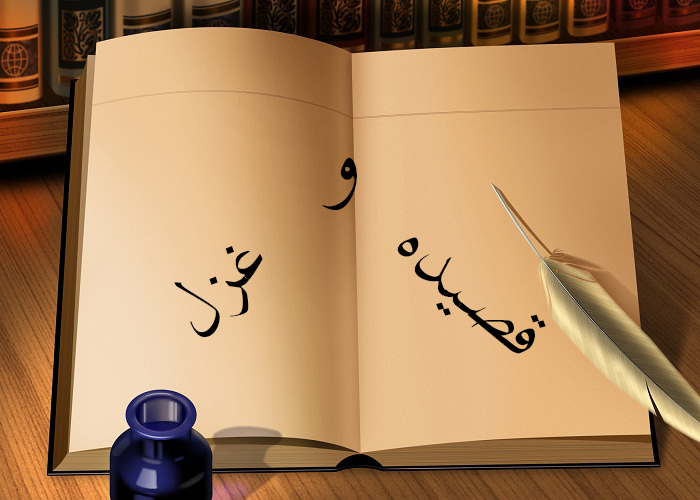 قصیده
و
غزل